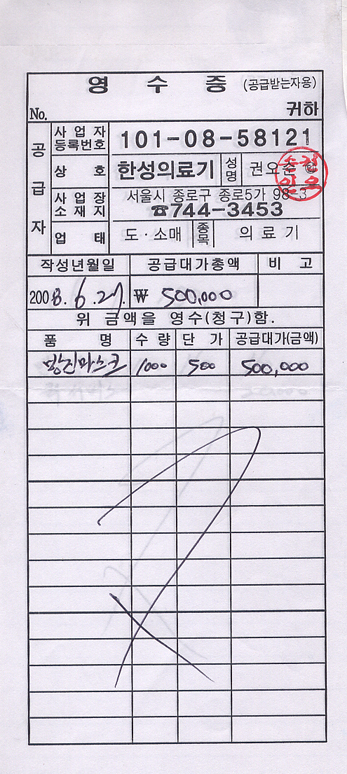 영 수 증 (공급받는자용)
No. 귀하
공급자
사업자등록번호 101-08-58121
상 호 한성의료기 성명 권오
사업장소재지 서울시 종로구 종로5가 98-3
☎744-3453
업 태 도·소매 종목 의 료 기
작성년월일 공급대가총액 비 고
2008. 6. 27. ₩ 500,000
위 금액을 영수(청구)함.
품 명 수 량 단 가 공급대가(금액)
방진마스크 1000 500 500,000